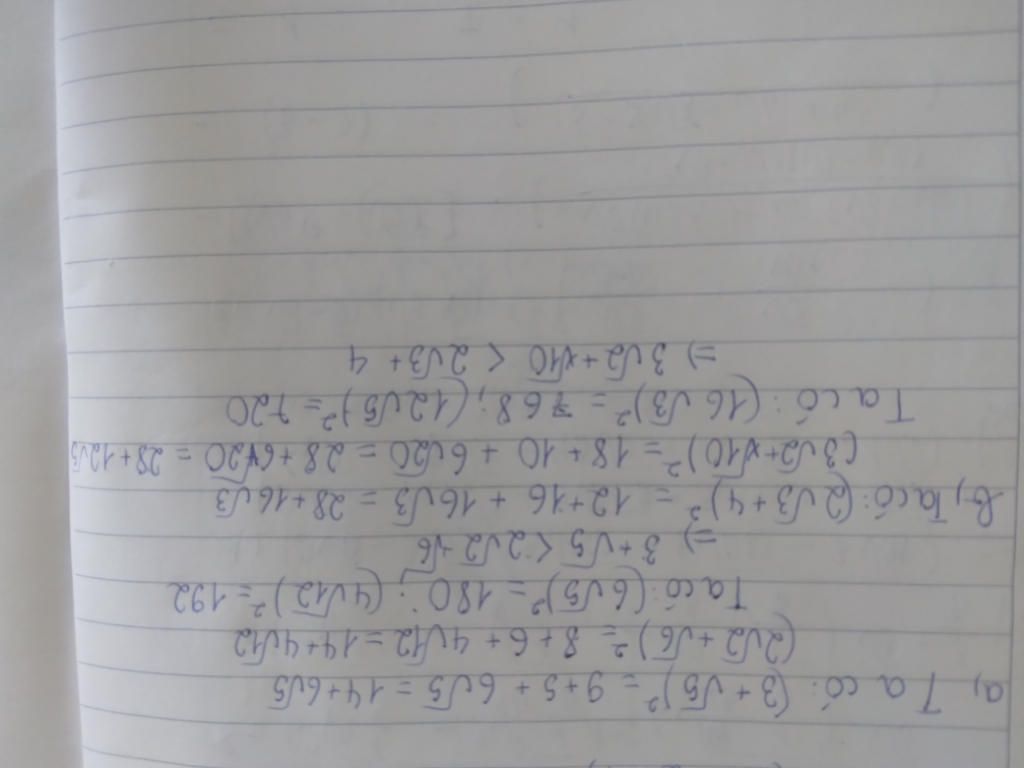 a, Ta có: (3 + √5)² = 9 + 5 + 6√5 = 14 + 6√5
(2√2 + √6)² = 8 + 6 + 4√12 = 14 + 4√12
Ta có: (6√5)² = 180 ; (4√12)² = 192
=> 3 + √5 < 2√2 + √6
b, Ta có: (2√3 + 4)² = 12 + 16 + 16√3 = 28 + 16√3
(3√2 + √10)² = 18 + 10 + 6√20 = 28 + 6√20 = 28 + 12√5
Ta có: (16√3)² = 768 ; (12√5)² = 720
=> 3√2 + √10 < 2√3 + 4